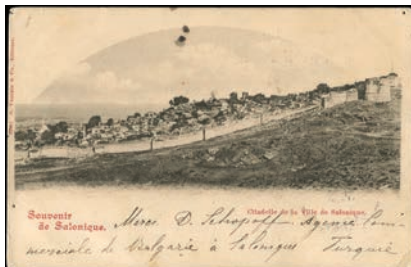 Souvenir
de Salonique.
Citadelle de la Ville de Salonique.
D. Agence Com-
merciale de Bulgarie à Salonique Turquie